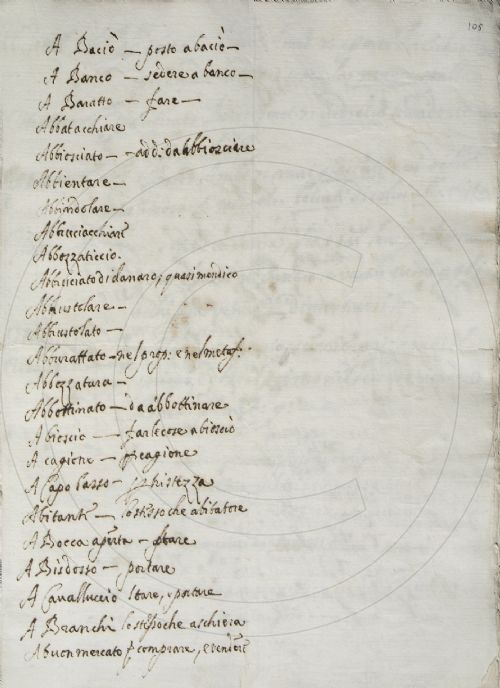 105
A Baciò — posto a baciò —
A Banco — sedere a banco —
A Baratto — fare —
Abbatacchiare
Abbiosciato — add: da Abbiosciare
Abbientare —
Abbindolare —
Abbozzaticcio.
Abbruciato di danaro, quasi mendico
Abbrustolare —
Abbrustolato —
Abburattato — nel prop: e nel metaf:
Abbozzatura —
Abbottinato — da abbottinare
A biescio — far le cose a biescio
A cagione — cagione
A Capo basso — tristezza
Abitante — lo stesso che abitatore
A Bocca aperta — stare
A Bisdosso — portare
A Cavalluccio stare, portare
A Branchi lo stesso che a schiera
A buon mercato comprare, e vendere